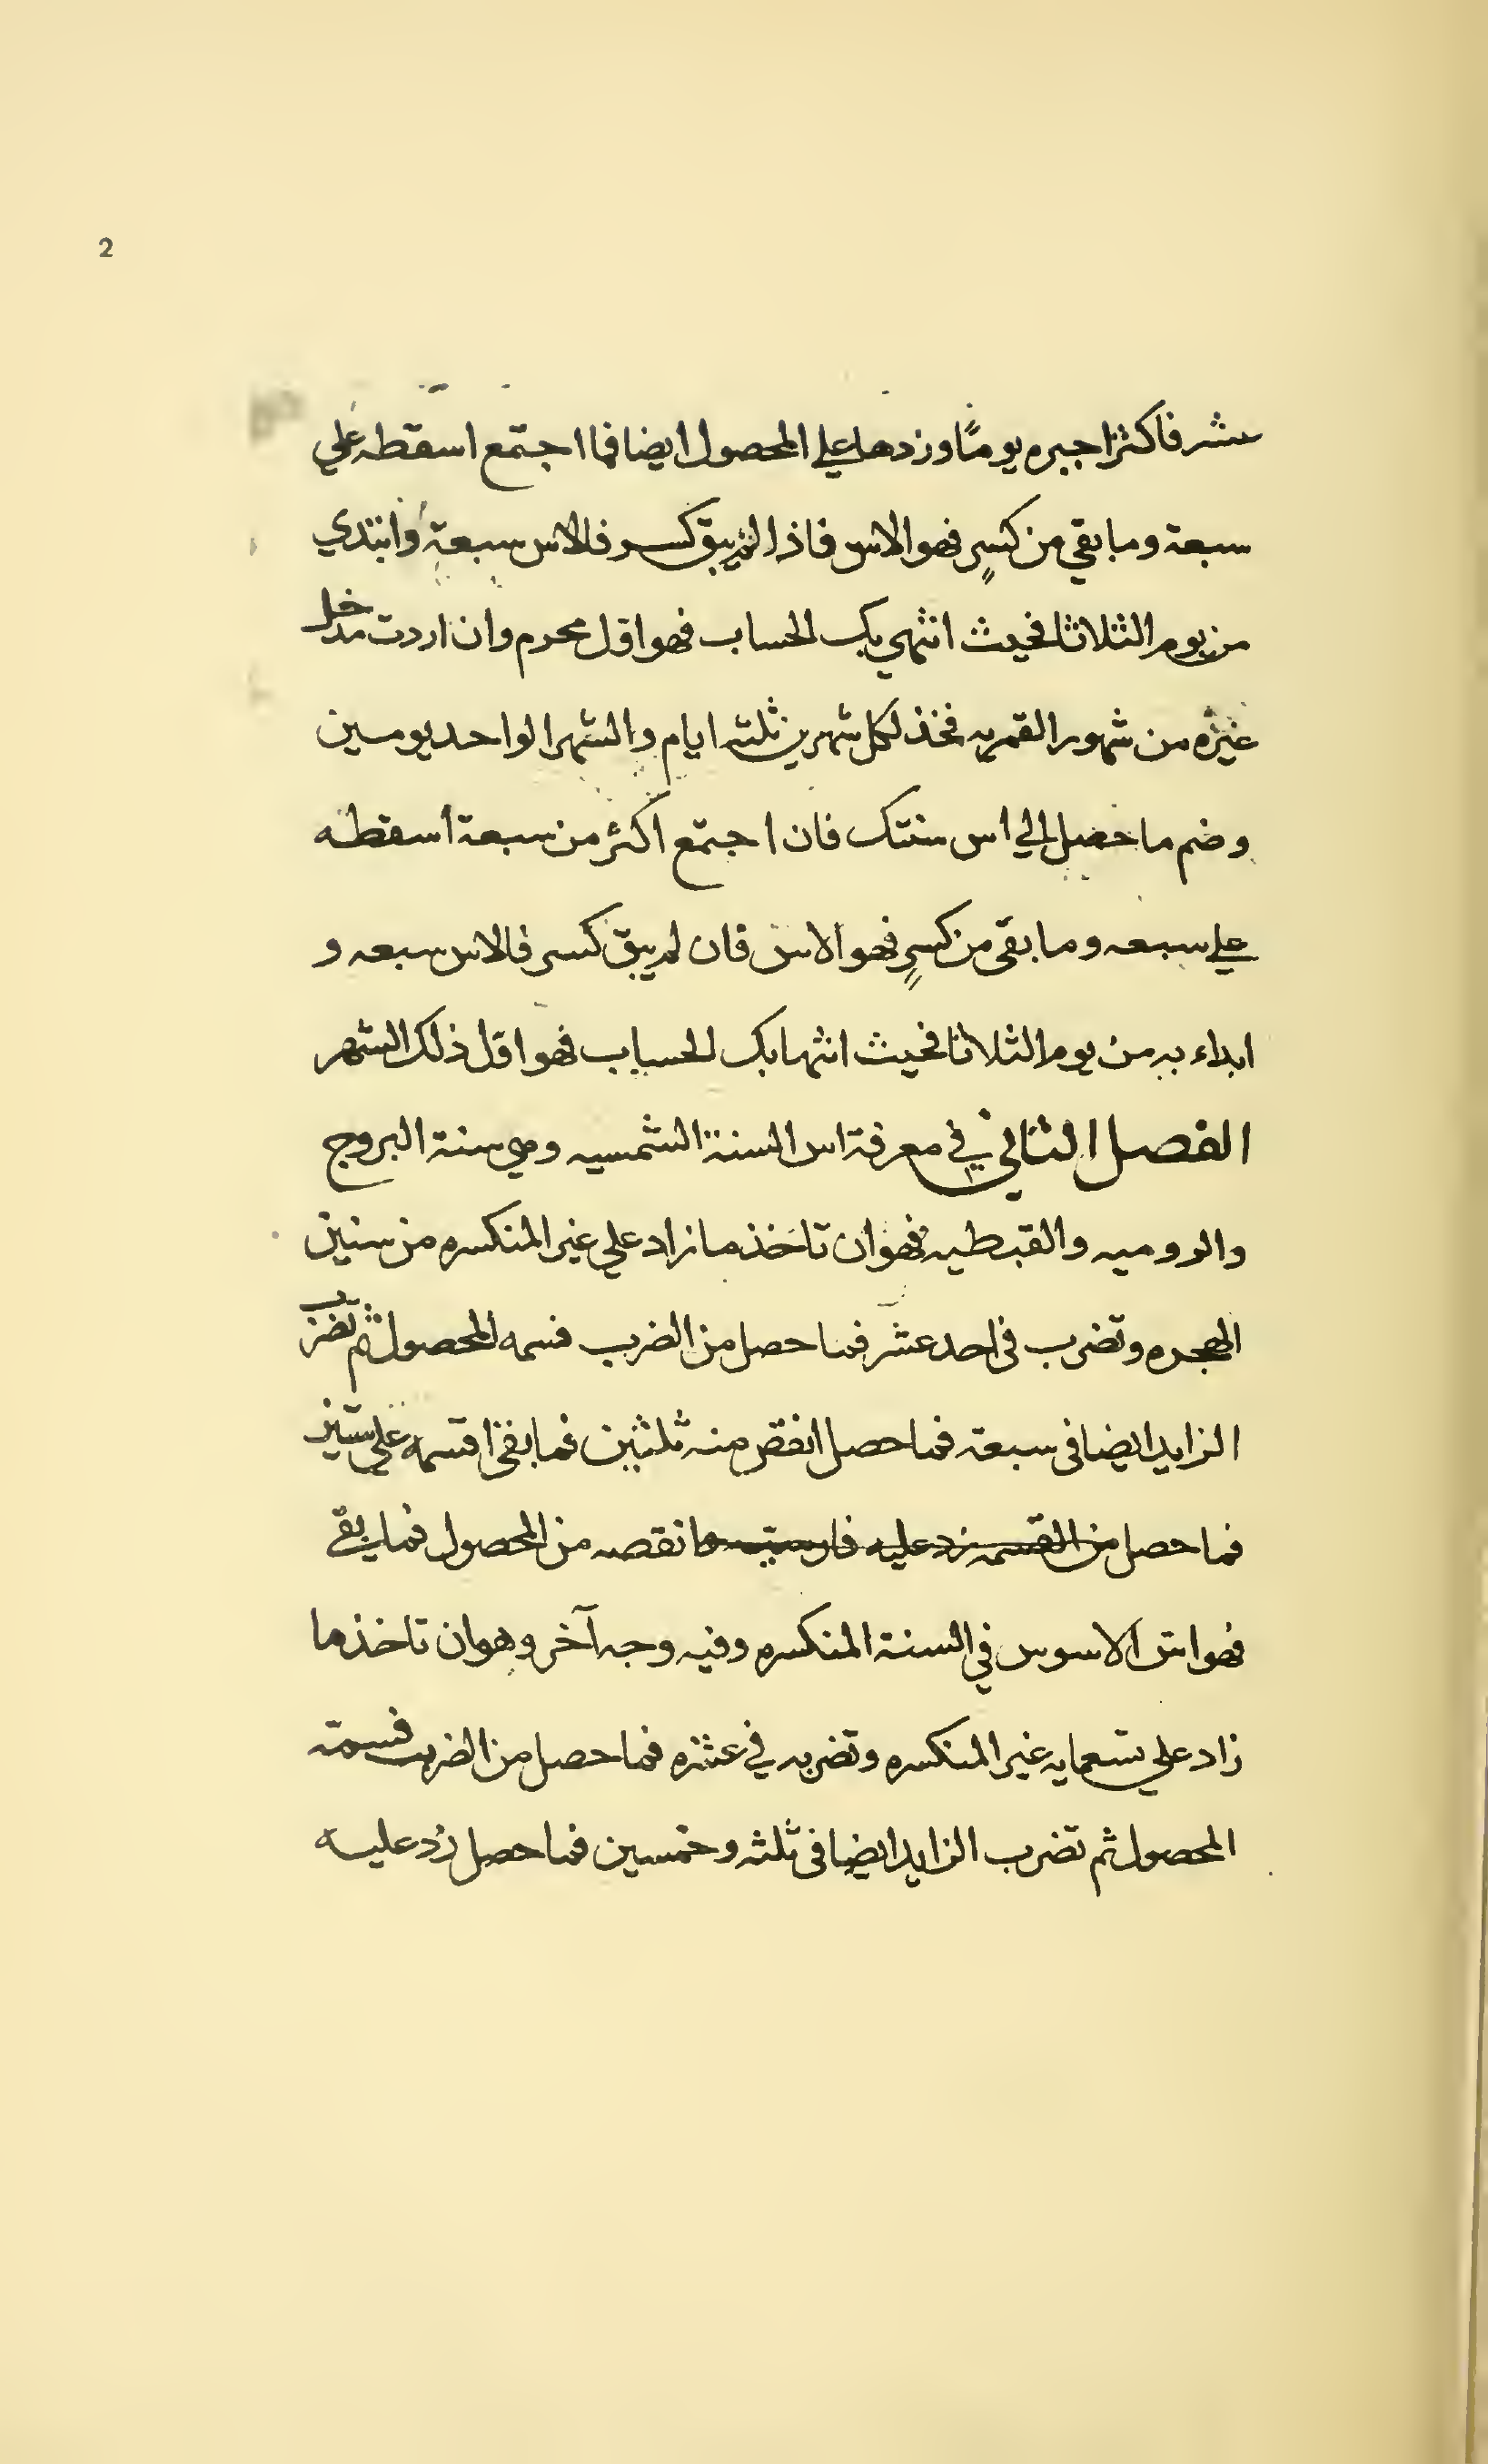 2
عشر فاكثر اجبره يومًا وزدها علي المحصول ايضا فما اجتمع اسقطه علي
سبعة وما بقي من كسرٍ فهو الاس فاذا لم يبق كسر فالاس سبعة وابتدي
من يوم الثلاثا فحيث انتهي بك الحساب فهو اول محرم وان اردت مدخل
غيره من شهور القمريه فخذ لكل شهرين ثلثه ايام والشهر الواحد يومين
وضم ما حصل الي اس سنتك فان اجتمع اكثر من سبعة اسقطه
علي سبعه وما بقي من كسرٍ فهو الاس فان لم يبق كسر فالاس سبعه و
ابداء به من يوم الثلاثا فحيث انتها بك الحساب فهو اول ذلك الشهر
الفصل الثاني في معرفة اس السنة الشمسيه وهي سنة البروج
والروميه والقبطيه فهو ان تاخذ ما زاد علي غير المنكسره من سنين
الهجره وتضرب في احد عشر فما حصل من الضرب فسمه المحصول ثم تضرب
الزايد ايضا في سبعة فما حصل انقص منه ثلثين فما بقي اقسمه علي ستين
فما حصل من القسمه زد عليه وانقصه من المحصول فما بقي
فهو اس الاسوس في السنة المنكسره وفيه وجه آخر وهو ان تاخذ ما
زاد علي تسعمايه غير المنكسره وتضربه في عشره فما حصل من الضرب فسمه
المحصول ثم تضرب الزايد ايضا في ثلثه وخمسين فما حصل زد عليه